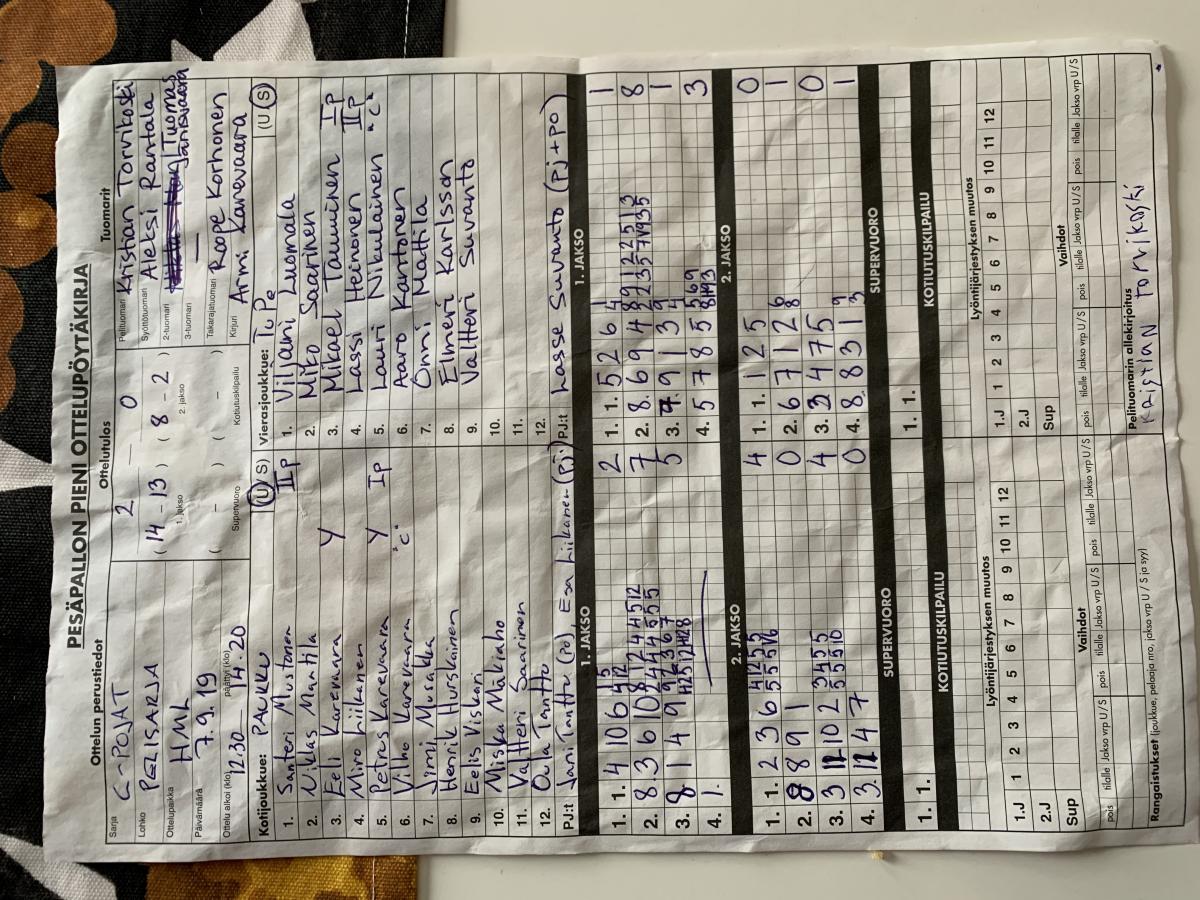 PESÄPALLON PIENI OTTELUPÖYTÄKIRJA
Ottelun perustiedot
Sarja C-POJAT
Lohko PERUSARJA
Ottelupaikka HML
Päivämäärä 7.9.19
Ottelu alkoi (klo) 12.30 päättyi (klo) 14.20
Ottelutulos
2 – 0
( 14 – 13 ) ( 8 – 2 )
1. jakso 2. jakso
( – ) ( – )
Supervuoro Kotiutuskilpailu
Tuomarit
Pelituomari Kristian Torvikoski
Syöttötuomari Aleksi Rantala
2-tuomari Tuomas Järvisvaara
3-tuomari —
Takarajatuomari Roope Korhonen
Kirjuri Armi Karevaara
Kotijoukkue: PAUKKU (U S)
1. Santeri Mustonen IIp
2. Niklas Manttila
3. Eeli Karevaara Y
4. Miro Liikanen
5. Petrus Karevaara Y Ip
6. Vilho Karevaara "C"
7. Jimi Musakka
8. Henrik Hurskainen
9. Eelis Viskari
10. Miska Mäkiaho
11. Valtteri Saarinen
12. Oula Tanttu
PJ:t Jani Tanttu (po), Esa Liikanen (Pj)
Vierasjoukkue: TuPe (U S)
1. Viljami Luomala
2. Miko Saarinen
3. Mikael Tamminen Ip
4. Lassi Heinonen IIp
5. Lauri Nikulainen "C"
6. Aaro Kantonen
7. Onni Mattila
8. Elmeri Karlsson
9. Valtteri Suvanto
10.
11.
12.
PJ:t Lasse Suvanto (Pj + po)
1. JAKSO
1. 1. 4 10 6 2
2. 8. 3 6 10 7
3. 8. 1 4 9 5
4. 1.
1. JAKSO
1. 1. 5 2 6 1
2. 8. 6 9 4 8
3. 7. 9 1 3 1
4. 5 7 8 5 3
2. JAKSO
1. 1. 2 3 6 4
2. 8 8 9 1 0
3. 3 12 10 2 4
4. 3. 12 4 7 0
2. JAKSO
1. 1. 1 2 5 0
2. 6 7 1 2 1
3. 3 2 4 7 5 0
4. 8. 8 3 1 1
SUPERVUORO
1. 1.
SUPERVUORO
1. 1.
KOTIUTUSKILPAILU
KOTIUTUSKILPAILU
Lyöntijärjestyksen muutos
1.J 1 2 3 4 5 6 7 8 9 10 11 12
2.J
Sup
Lyöntijärjestyksen muutos
1.J 1 2 3 4 5 6 7 8 9 10 11 12
2.J
Sup
Vaihdot
pois tilalle Jakso vrp U / S pois tilalle Jakso vrp U / S pois tilalle Jakso vrp U / S
Vaihdot
pois tilalle Jakso vrp U / S pois tilalle Jakso vrp U / S pois tilalle Jakso vrp U / S
Rangaistukset (joukkue, pelaaja nro, jakso vrp U / S ja syy)
Pelituomarin allekirjoitus
Kristian Torvikoski